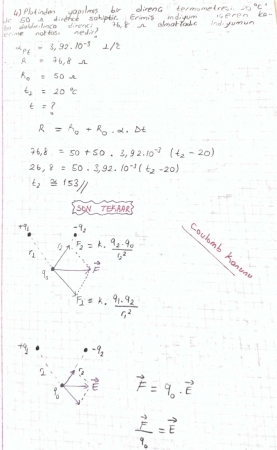 4) Platinden yapılmış bir direnç termometresi 20 °C'
de 50 Ω dirence sahiptir. Erimiş indiyum içeren ka-
ba daldırılınca direnci 76,8 Ω olmaktadır. indiyumun
erime noktası nedir?
α = 3,92.10⁻³ 1/°C
R = 76,8 Ω
R₀ = 50 Ω
t₁ = 20 °C
t = ?
R = R₀ + R₀ . α . Δt
76,8 = 50 + 50 . 3,92.10⁻³ (t₂ - 20)
26,8 = 50 . 3,92.10⁻³ (t₂ - 20)
t₂ ≅ 153 //
SON TEKRAR
Coulomb Kanunu
+q₁
-q₂
r₁
q₀
F₂ = k . q₂.q₀ / r₂²
F
F₁ = k . q₁.q₂ / r₁²
+q₁
-q₂
q₀
E
F = q₀ . E
F / q₀ = E